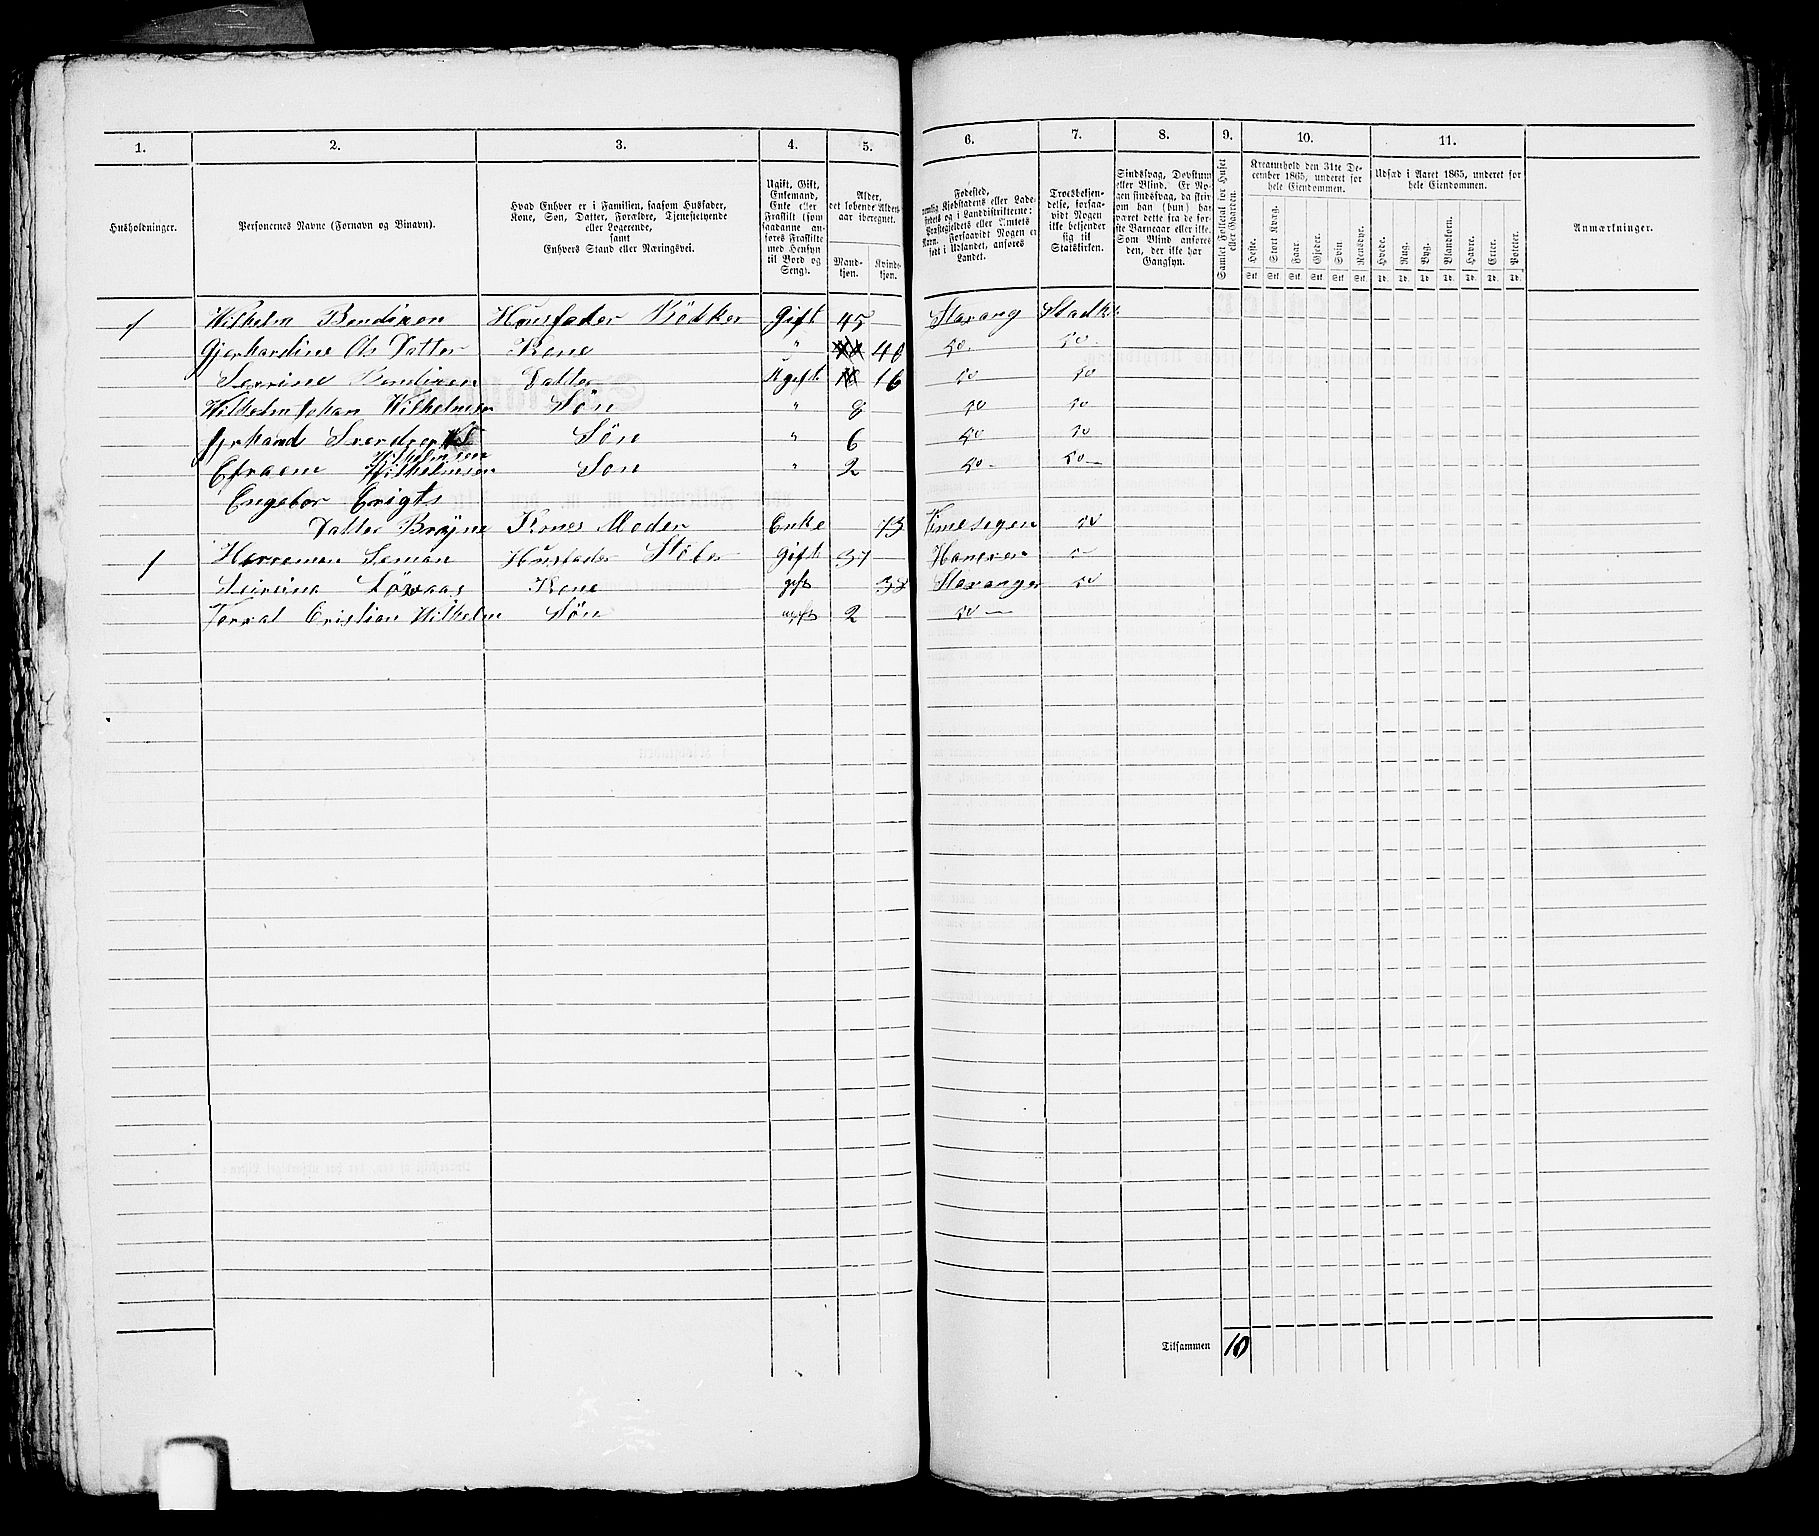 1. 2. 3. 4. 5. 6. 7. 8. 9. 10. 11.
Husholdninger.
Personernes Navne (Fornavn og Binavn).
Hvad Enhver er i Familien, saasom Husfader,
Kone, Søn, Datter, Forældre, Tjenestetyende
eller Logerende,
samt
Enhvers Stand eller Næringsvei.
Ugift, Gift,
Enkemand,
Enke eller
Fraskilt (som
saadanne an-
føres Fraskilte
med Hensyn
til Bord og
Seng).
Alder,
det løbende Alders-
aar iberegnet.
Mand-
kjøn.
Kvind-
kjøn.
Fødested,
nemlig Kjøbstadens eller Lade-
stedets og i Landdistrikterne:
Præstegjeldets eller Amtets
Navn. Forsaavidt Nogen er
født i Udlandet, anføres
Landet.
Troesbekjen-
delse, forsaa-
vidt Nogen
ikke bekjender
sig til
Statskirken.
Sindssvag, Døvstum
eller Blind. Er No-
gen sindssvag, da skri-
ves om han (hun) har
været dette fra de før-
ste Barneaar eller ikke.
Som Blind anføres
den, der ikke har
Gangsyn.
Samlet Folketal for Huset
eller Gaarden.
Kreaturhold den 31te De-
cember 1865, underet for
hele Eiendommen.
Heste. Stort Kvæg. Faar. Gjeder. Svin Rensdyr.
Stk. Stk. Stk. Stk. Stk. Stk.
Udsæd i Aaret 1865, underet for
hele Eiendommen.
Hvede. Rug. Byg. Blandkorn. Havre. Erter. Poteter.
Td. Td. Td. Td. Td. Td. Td.
Anmærkninger.
1 Vilhelm Bendixen Husfader Bödker Gift 45 Stavang Stadki
Gjerhardine Ols Datter Kone " 40 do. do.
Serrine Bendixen Datter Ugeft 16 do do
Vilhelm Johan Vilhelmsen Sön " 8 do do
Sön " 6 do do
Efraem Vilhelmsen Son " 2 do do
Engebor Erigts
Datter Bryne Kones Moder Enke 73 do
1 Herreman Seman Husfader Gift 37
Kone geft 38 Stavanger do
Cristian Vilhelm Sön ugeft 2 do
Tilsammen 10